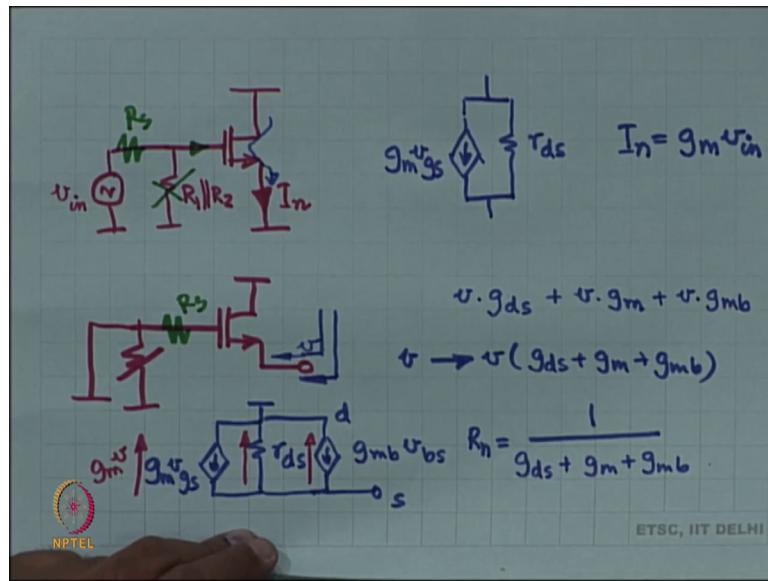 R_s
v_in
R_1||R_2
I_n
g_m v_gs
r_ds
I_n = g_m v_in
R_s
v
v · g_ds + v · g_m + v · g_mb
v → v ( g_ds + g_m + g_mb )
g_m v
g_m v_gs
r_ds
g_mb v_bs
d
s
R_n = 1 / g_ds + g_m + g_mb
NPTEL
ETSC, IIT DELHI